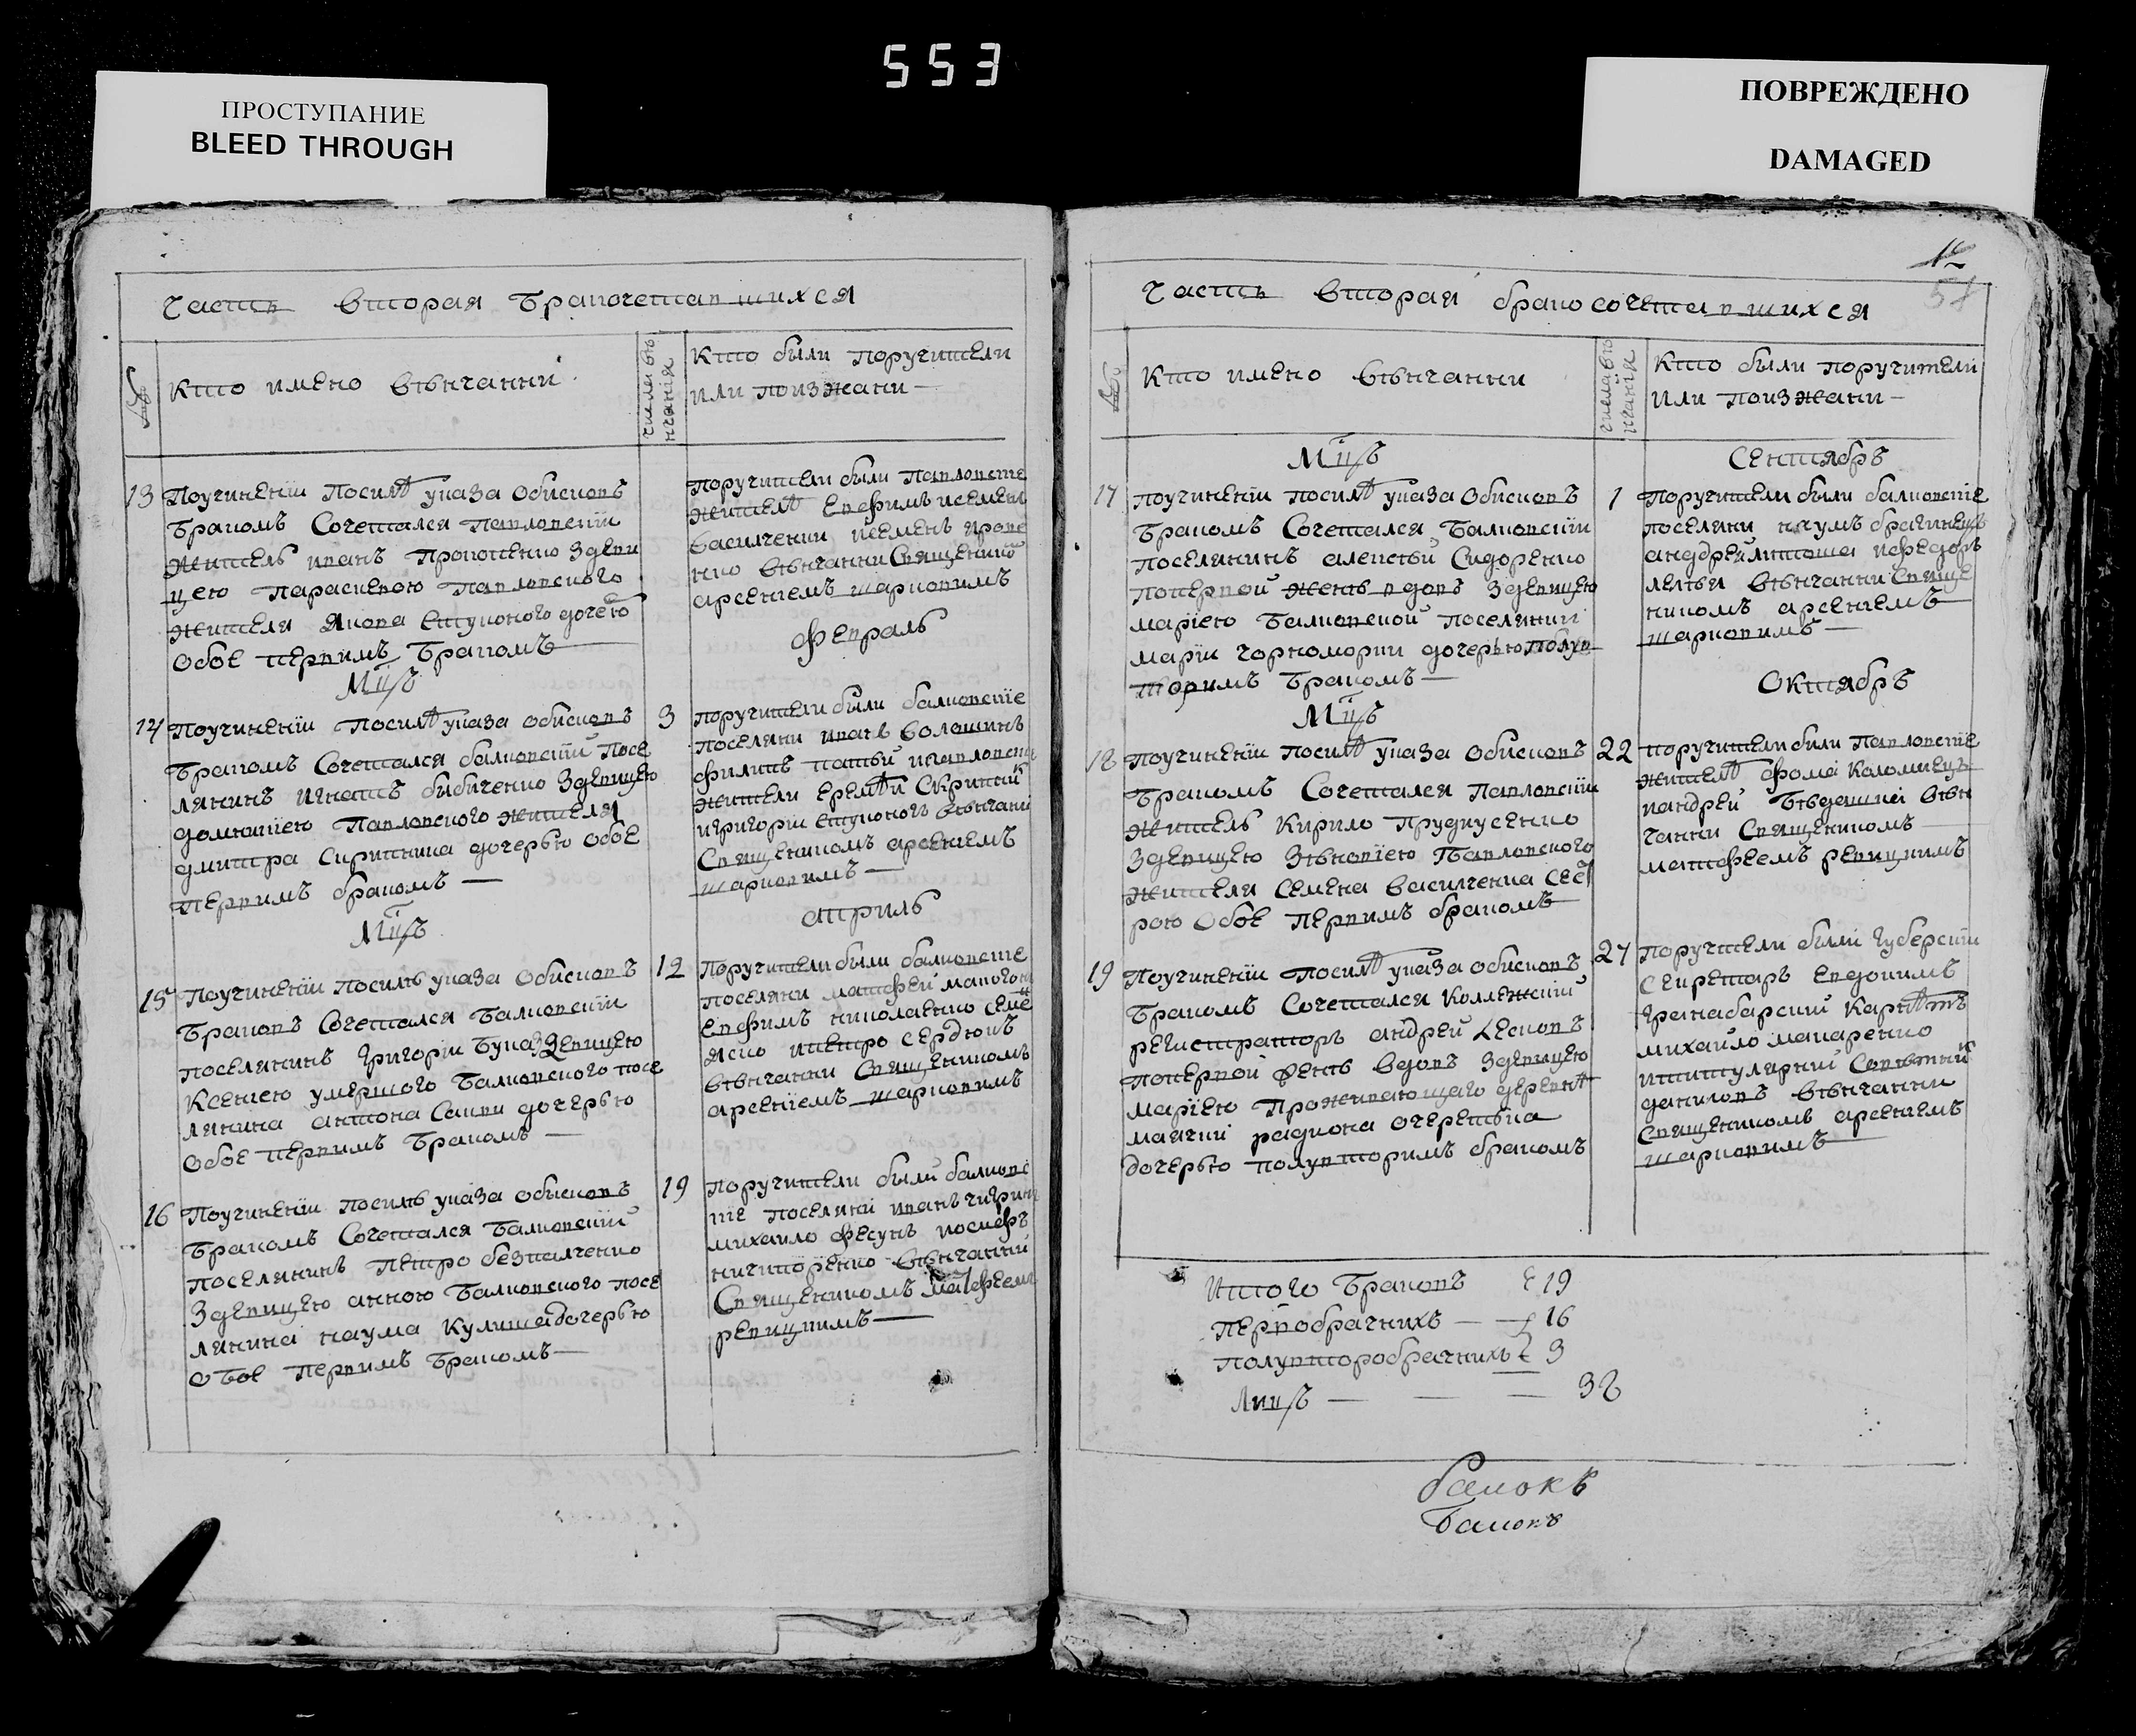 553
ПРОСТУПАНИЕ
BLEED THROUGH
ПОВРЕЖДЕНО
DAMAGED
Часть вторая бракочетавшихся
Кто имено венчанни
числа вѣ
нчанїя
Кто были поручители
или поизжани
13 Поучиненїи посилѣ указа обисковъ
бракомъ Сочетался павловскїи
житель иванъ Прокопенко здеви
цею параскевою павловского
жителя якова ступкого дочерю
обое первимъ бракомъ
поручители были павловские
жителѣ Ефимъ исемен
василченки
нко венчанни Священико
арсениемъ шарковимъ
Мцъ
февраль
14 Поучиненїи посилѣ указа обисковъ
бракомъ Сочетался балковскїи посе
лянинъ игнатъ бибиченко здевицею
домникїею павловского жителя
дмитра Скрипника дочерью обое
первимъ бракомъ
3 поручители были балковскїе
поселяни иванъ волошинъ
филипъ патый ипавловские
жители еремѣй Скрипник
игригорїи ступкогъ венчани
Священикомъ арсениемъ
шарковимъ
Мцъ
априль
15 Поучиненїи посилѣ указа обисковъ
браковъ Сочетался балковскїи
поселянинъ григорїи бука здевицею
Ксениею умершого балковского посе
лянина антона Сакви дочерью
обое первимъ бракомъ
12 Поручители были балковские
поселяни матфей
Ефимъ николаенко семе
яско ипетро сердюкъ
венчанни Священикомъ
арсенїемъ шарковимъ
16 Поучиненїи посилѣ указа обисковъ
бракомъ Сочетался балковскїи
поселянинъ петро безпалченко
здевицею анною балковского посе
лянина наума кулиша дочерью
обое первимъ бракомъ
19 поручители были балковс
кїе поселяни иванъ чигрин
михаило фесунъ иосифъ
ничипоренко венчанни
Священикомъ матфеем
ревицкимъ
Часть вторая бракосочетавшихся
Кто имено венчанни
числа вѣ
нчанїя
Кто были поручители
или поизжани
Мцъ
Сентябръ
17 поучиненїи посилѣ указа обисковъ
бракомъ Сочетался балковскїи
поселянинъ алексѣй Сидоренко
попервой женѣ вдовъ здевицею
марїею балковской поселянки
марїи чорноморки дочерью полув
торимъ бракомъ
1 поручители были балковскїе
поселяни наумъ брагинецъ
андрей литоша ифедоръ
венчанни Свяще
никомъ арсениемъ
шарковимъ
Мцъ
Октябръ
18 Поучиненїи посилѣ указа обисковъ
бракомъ Сочетался павловскїи
житель Кирило Прудкусенко
здевицею Зѣновїею Павловского
жителя Семена василченка сест
рою обое первимъ бракомъ
22 поручители били павловскїе
жителѣ фома Коломиецъ
иандрей венчанни
чанни Священикомъ
матфеемъ ревицкимъ
19 Поучиненїи посилѣ указа обисковъ
бракомъ Сочетался коллежскїй
регистраторъ андрей лесковъ
попервой женѣ вдовъ здевицею
марїею Проживающаго деревнѣ
маячкї радиона очеретька
дочерью полувторимъ бракомъ
27 Поручители были губерскїи
секретаръ евдокимъ
гранабарский
михаило макаренко
ититулярнїй Совѣтнїк
даниловъ венчанни
Священикомъ арсениемъ
шарковимъ
Итого браковъ 19
первобрачнихъ — 16
полувторобрачнихъ 3
Лицъ — 38